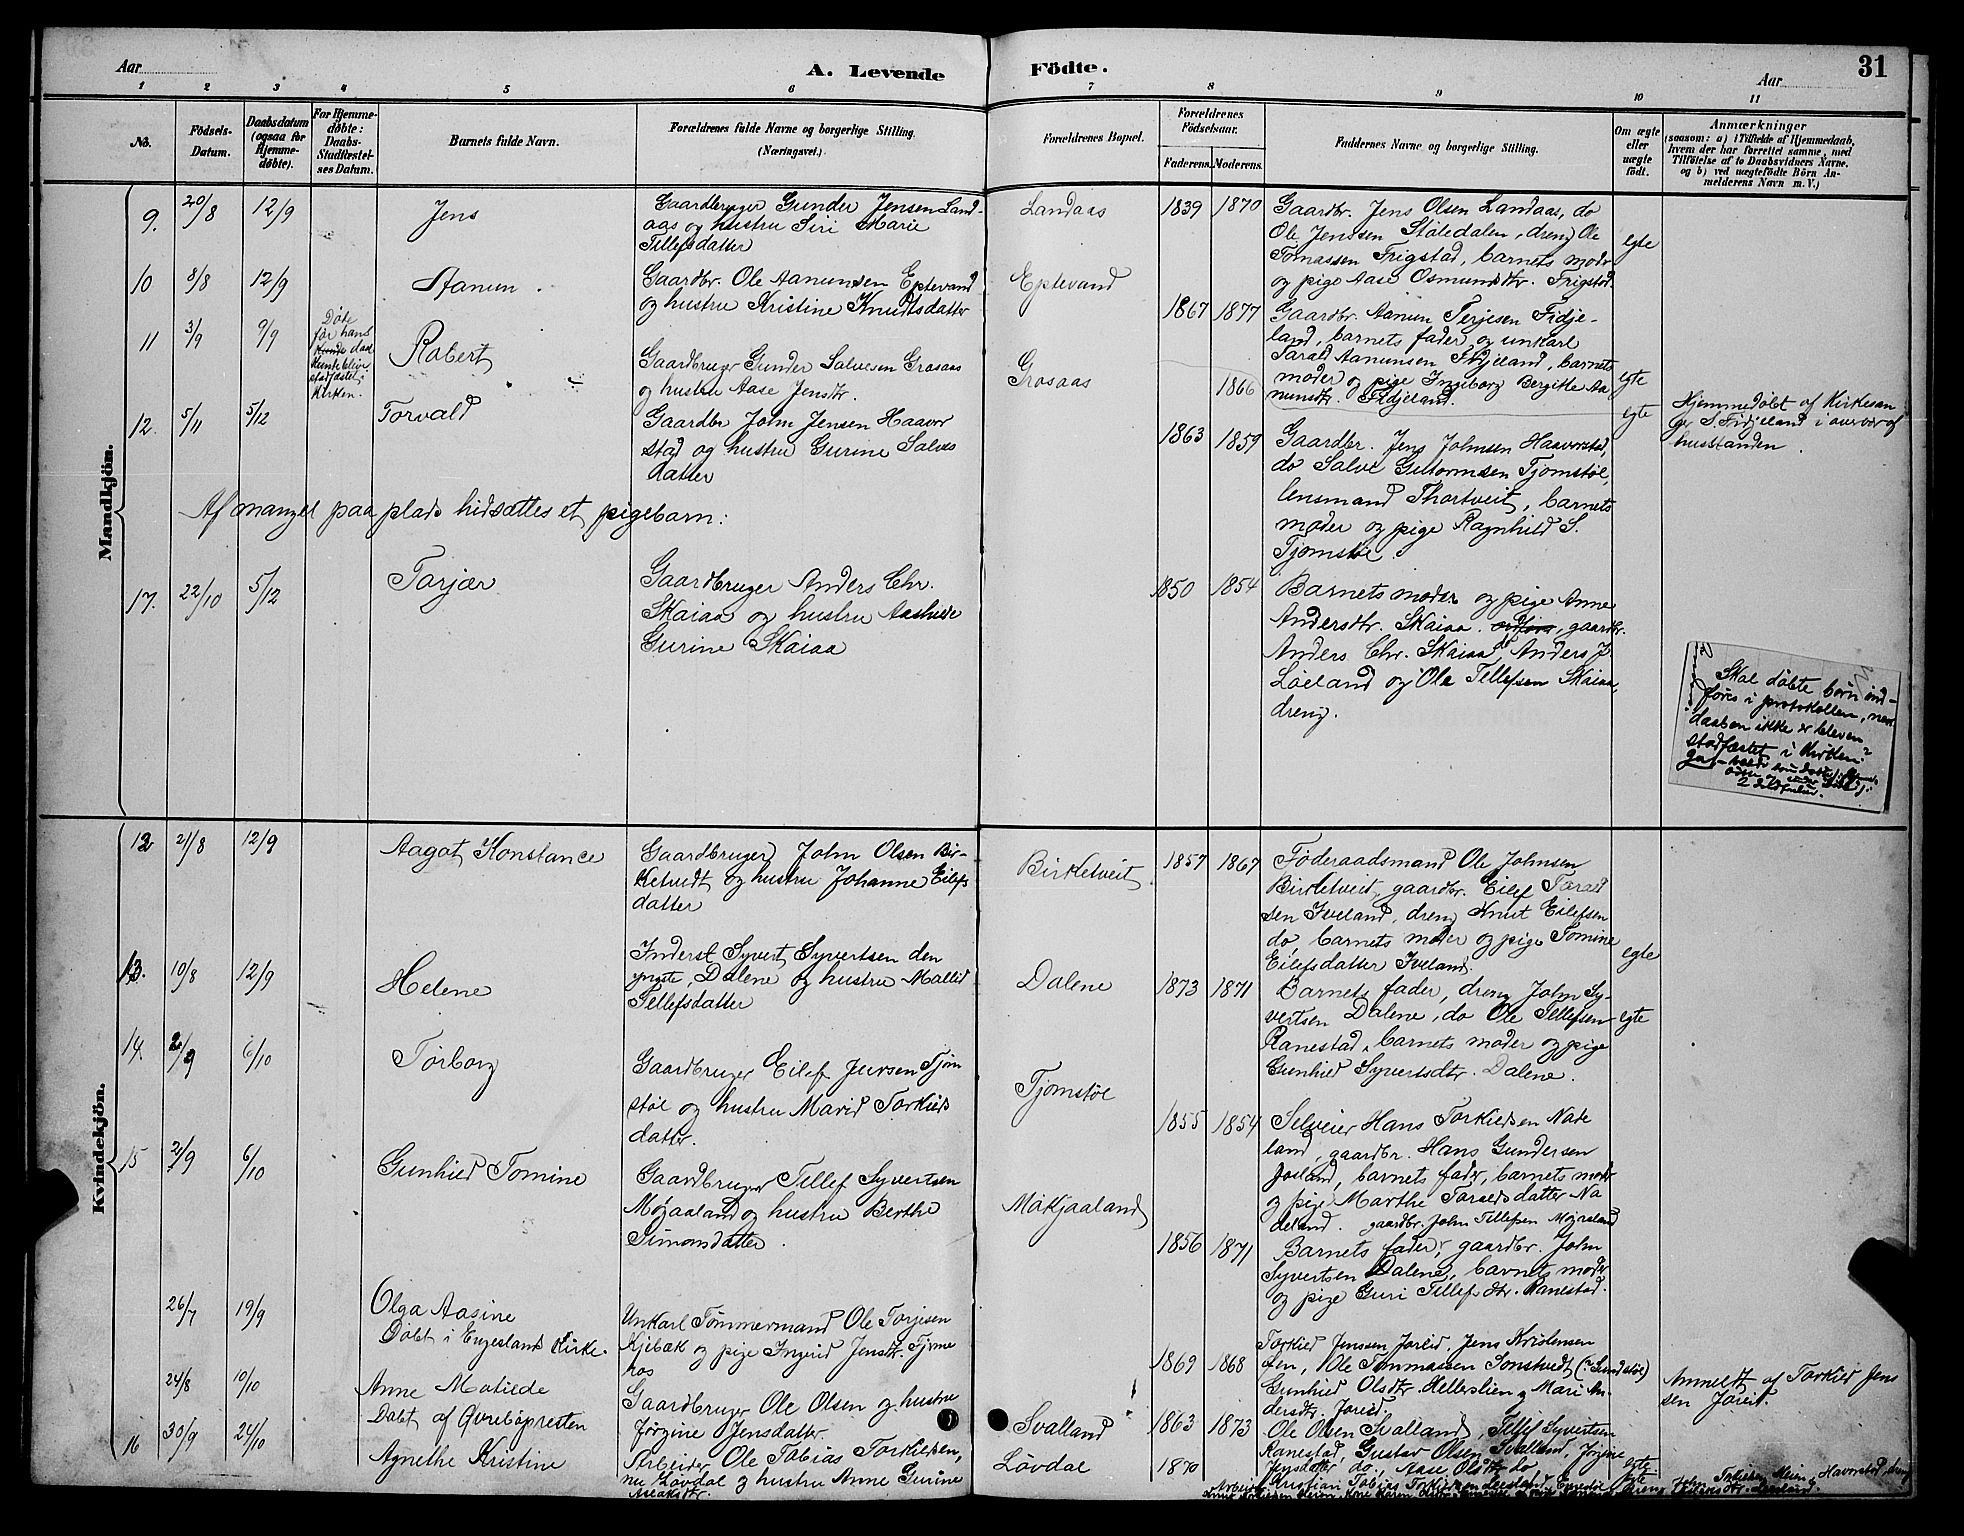 Aar
A. Levende
Födte.
Aar
31
1 2 3 4 5 6 7 8 9 10 11
No.
Födsels-
Datum.
Daabsdatum
(ogsaa for
Hjemme-
døbte).
For Hjemme-
døbte:
Daabs-
Stadfæstel-
ses Datum.
Barnets fulde Navn.
Forældrenes fulde Navne og borgerlige Stilling.
(Næringsvei.)
Forældrenes Bopæl.
Forældrenes
Födselsaar.
Faderens. Moderens.
Faddernes Navne og borgerlige Stilling.
Om ægte
eller
uægte
födt.
Anmærkninger
(saasom: a) i Tilfælde af Hjemmedaab,
hvem der har forrettet samme, med
Tilföielse af to Daabsvidners Navne.
og b) ved uægtefödte Börn An-
melderens Navn m. V.)
Mandkjön.
9. 20/8 12/9
Jens
Gaardbruger Gunder Jensen Land-
aas og hustru Siri Marie
Tellefsdatter
Landaas
1839 1870
Gaardbr. Jens Olsen Landaas, do
Ole Jenssen Støledalen, dreng Ole
Tomassen Frigstad, barnets moder
og pige Aase Osmundsdtr. Frigstad
egte
10 8/8 12/9
Aanun
Gaardbr. Ole Aanunsen Eptevand
og hustru Kristine Knudtsdatter
Eptevand
1867 1877
Gaardbr. Aanun Terjesen Fidje-
land, barnets fader og unkarl
Tarald Aanunsen Fidjeland, barnets
moder og pige Ingeborg Bergitte Aa-
nunsdtr. Fidjeland.
egte
11 3/9 9/9
Døde
før hans
kunde daab
kunde blive
stadfæstet i
Kirken.
Robert
Gaardbruger Gunder Salvesen Grosaas
og hustru Aase Jensdtr.
Grosaas
1866
egte
Hjemmedøbt af Kirkesan
ger S. Fidjeland i overvær af
husstanden.
12. 5/11 5/12
Torvald
Gaardbr John Jensen Haavor
stad og hustru Gurine Salves
datter
1863 1859
Gaardbr. Jens Johnsen Haavorstad,
do Salve Gutormsen Tjomstøl,
lensmand Thortveit, barnets
moder og pige Ragnhild S.
Tjomstøl.
Af mangel paa plads hidsættes et pigebarn:
17. 22/10 5/12
Tarjær
Gaardbruger Anders Chr.
Skaiaa og hustru Aashild
Gurine Skaiaa
1850 1854
Barnets moder og pige Anne
Andersdtr. Skaiaa, gaardbr.
Anders Chr. Skaiaa, Anders J.
Løeland og Ole Tellefsen Skaiaa,
dreng.
Skal døbte børn ind-
føres i protokollen, naar
daaben ikke er bleven
stadfæstet i Kirken?
Kvindekjön.
12 21/8 12/9
Aagot Konstance
Gaardbruger John Olsen Bir-
ketvedt og hustru Johanne Eilefs
datter
Birketveit
1857 1867
Føderaadsmand Ole Johnsen
Birketveit, gaardbr. Eilef Tarald
sen Iveland, dreng Knut Eilefsen
do, barnets moder og pige Tomine
Eilefsdatter Iveland.
egte
13. 10/8 12/9
Helene
Inderst Syvert Syvertsen den
yngste, Dalene og hustru Mallid
Tellefsdatter
Dalene
1873 1871
Barnets fader, dreng John Sy-
vertsen Dalene, do Ole Tellefsen
Ranestad, barnets moder og pige
Gunhild Syvertsdtr. Dalene.
egte
14. 2/9 6/10
Torborg
Gaardbruger Eilef Jensen Tjom
støl og hustru Marid Torkilds
datter.
Tjomstøl
1855 1854
Selveier Hans Torkildsen Nate
land, gaardbr. Hans Gundersen
Josland, barnets fader, barnets moder
og pige Marthe Taraldsdatter Na
deland. gaardbr. John Tellefsen Møjaaland
15 2/9 6/10
Gunhild Tomine
Gaardbruger Tellef Syvertsen
Møjaaland og hustru Berthe
Simonsdatter.
Møkjaaland
1856 1871
Barnets fader, gaardbr. John
Syvertsen Dalene, barnets moder
og pige Guri Tellefsdtr. Ranestad.
26/7 19/9
Olga Aasine
Døbt i Engesland Kirke.
Unkarl Tømmermand Ole Torjesen
Kjebæk og pige Ingerid Jensdtr. Tjome
aas
1869 1868
Torkild Jenssen Joreid, Jens Kristensen
sen, Ole Tommassen Sonstvedt (? Sundstøl)
Gunhild Olsdtr. Hellerslien og Mari An
dersdtr. Joreid.
Anmeldt af Torkild Jens
sen Joreid.
24/8 10/10
Anne Matilde
Døbt af Øvrebøpresten
Gaardbruger Ole Olsen og hustru
Jørgine Jensdatter
Svalland
1863 1873
Ole Olsen Svalland, Tellef Syvertsen
Ranestad, Gustav Olsen Svalland, Jørgine
Jensdatter do, Aase Olsdtr do
egte
16 30/9 24/10
Agnethe Kristine
Arbeider Ole Tobias Torkildsen,
nu Løvdal og hustru Anne Gurine
Aslaksdtr.
Løvdal
1870
Arbeider Kristian Tobias Torkildsen
egte